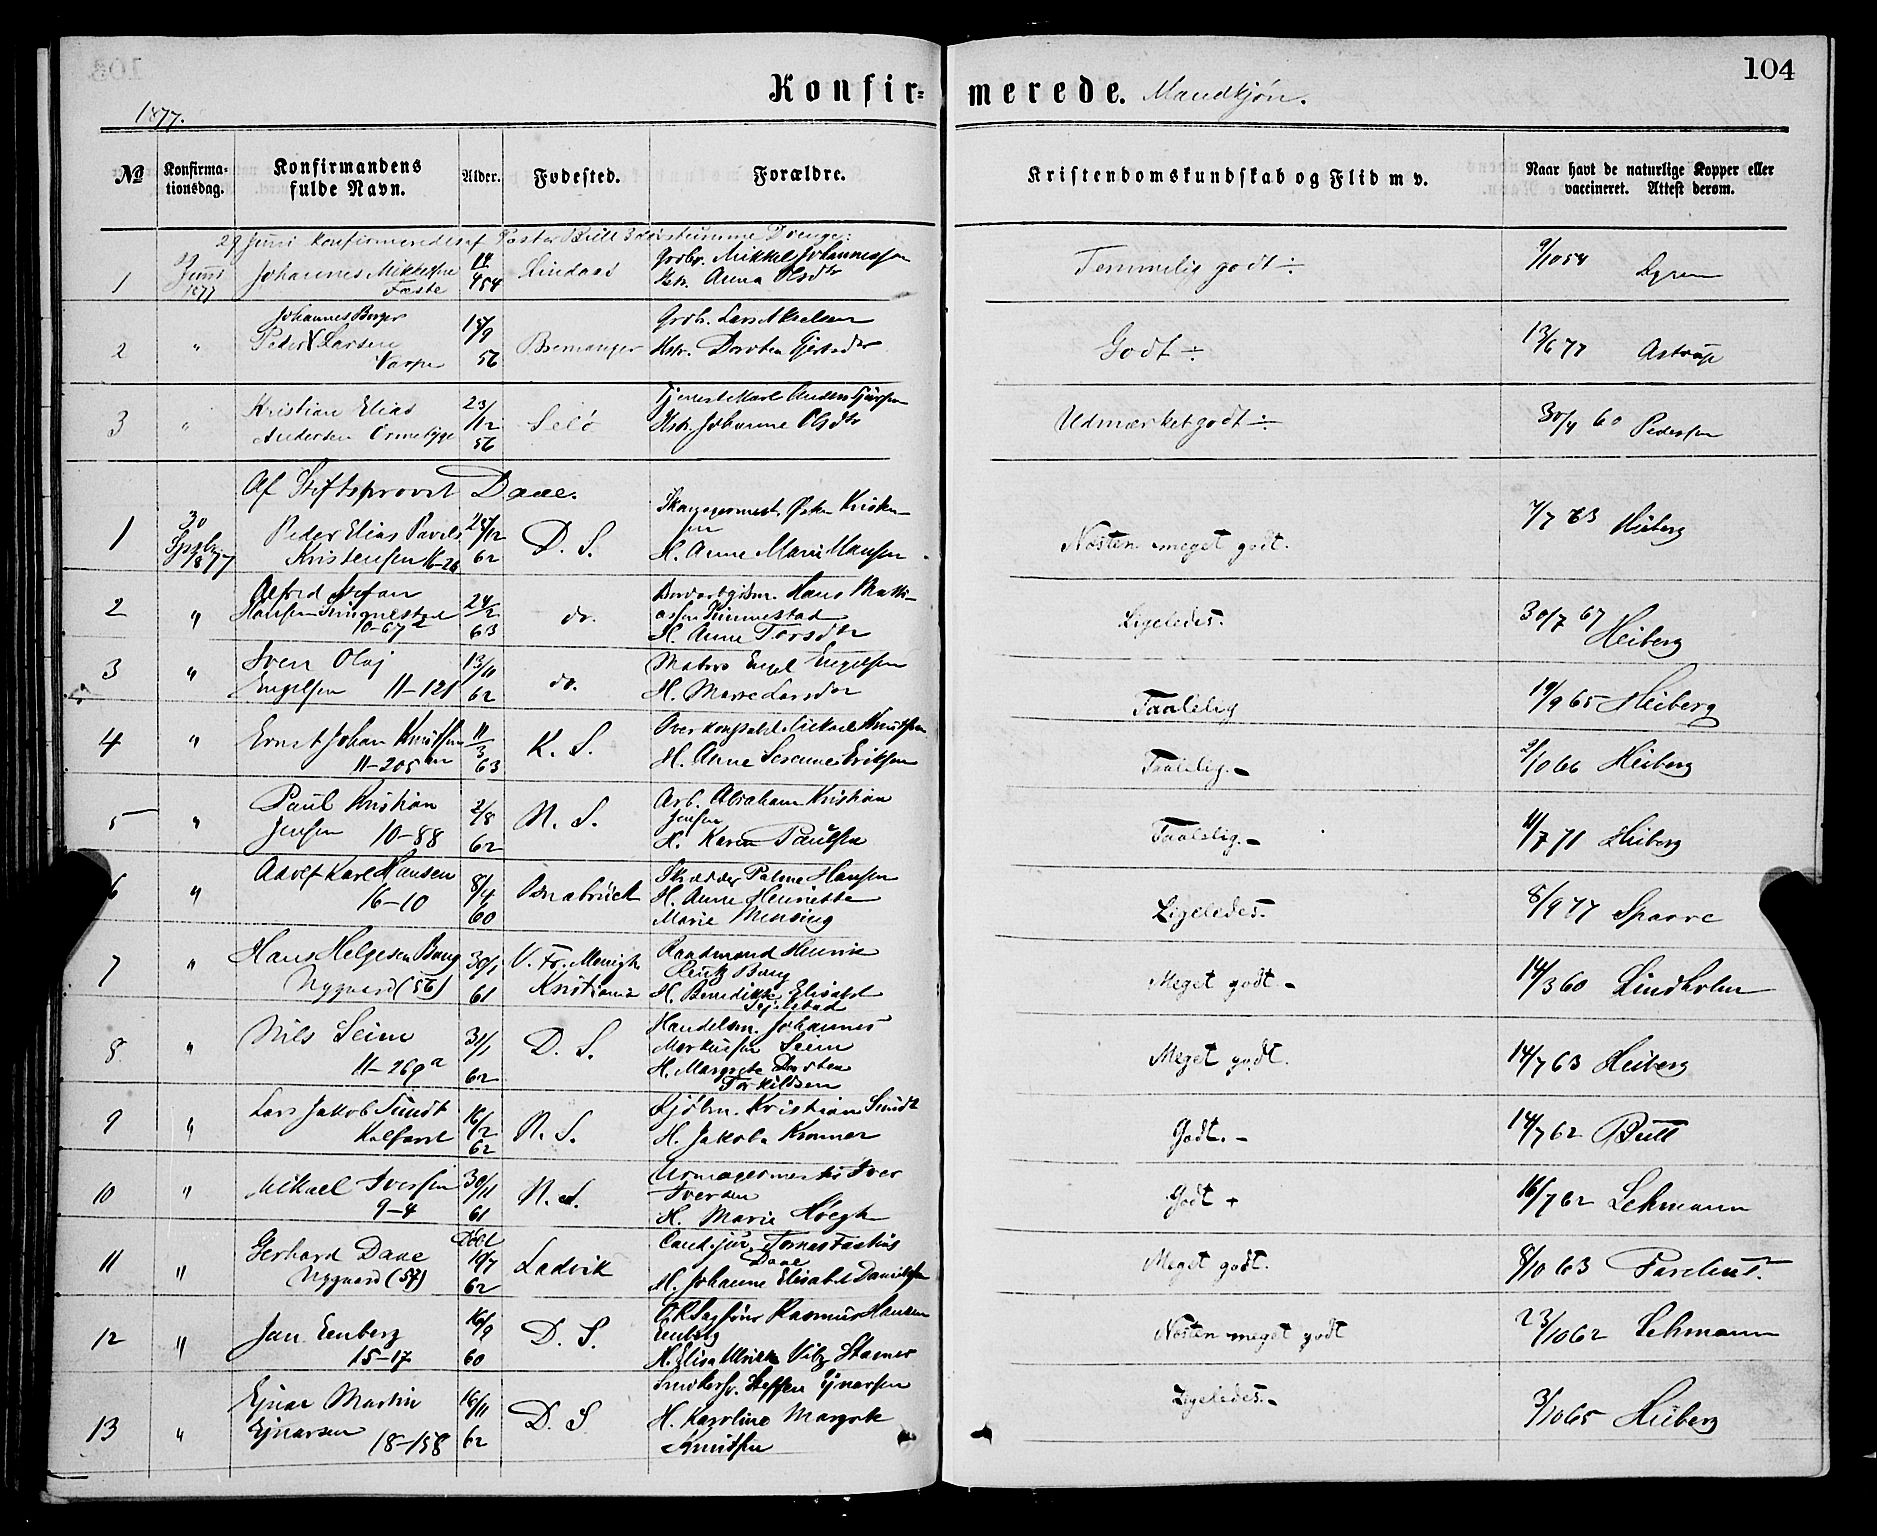 104
Konfirmerede. Mandkjön.
1877.
№ Konfirma-tionsdag. Konfirmandens fulde Navn. Alder. Fodested. Forældre. Kristendomskundskab og Flid m v. Naar havt de naturlige Kopper eller vaccineret. Attest derom.
29 Juni konfirmeredes af Pastor Bull 3 døvstumme Drenge:
1 29 Juni 1877 Johannes Mikkelsen Fæste 14/4 54 Lindaas Grdbr. Mikkel Johannessen
Hstr. Anna Olsdtr Temmelig godt ÷ 9/10 54
Johannes Berger
2 " Peder V Larsen 15/9 56 Bremanger Grdb. Lars Akselsen
Hstr. Dorthea Gjertsdtr Godt ÷ 13/6 77 Astrup
3 " Kristian Elias
Andersen 23/12 56 Selö Tjenestekarl Anders
Hstr. Johanne Olsdtr Udmærket godt ÷ 30/4 60 Pedersen
Af Stiftsprovst Daae.
1 30 Septbr 1877 Peder Elias Pavels
Kristensen 16-26 25/12 62 D. S.
H. Anne Marie Hansen Nösten meget godt. 7/7 63 Heiberg
2 " Alfred Stefan
Hansen 10-67a 24/2 63 do. Hans Matti-
assen Kinnestad
H. Anne Torsdtr Ligeledes. 30/7 67 Heiberg
3 " Sven Olaj
Engelsen 11-121 13/11 62 do. Matros Engel Engelsen
H. Marte Larsdtr Taalelig 19/9 65 Heiberg
4 " Ernst Johan Knudsen
11-205 11/3 63 K. S. Overkonstabel Mickael Knudsen
H. Anne Eriksen Taalelig. - 2/10 66 Heiberg
5 " Paul Kristian
Jensen 10-88 2/8 62 N. S. Arb. Abraham Kristian
Jensen
H. Karen Paulsen Taalelig. - 4/7 71 Heiberg
6 " Adolf Karl Hansen
16-10 8/4 60 Osnabrück Skrædder Palme Hansen
H. Anne Henriette
Marie Mensing Ligeledes. 8/9 77 Sparre
7 " Hans Helgesen Bang
Nygaard (56) 30/1 61 V. Fr. Menigh.
Kristiania Raadmand Henrik
Rentz Bang
H. Benedikte Elisabet
Sejelstad Meget godt - 14/3 60 Lindholm
8 " Nils Seim
11-269a 31/1 62 D. S. Handelsm. Johannes
Markussen Seim
H. Margrete Dorthea
Torkildsen Meget godt. 14/7 63 Heiberg
9 " Lars Jakob Sundt
Kalfaret 16/2 62 N. S. Kjöbm. Kristian Sundt
H. Jakoba Kromer Godt. - 14/7 62 Bull
10 " Mikael Iversen
9-4 30/11 61 N. S. Urmagermester Iver
Iversen
H. Marie Höegh Godt + 16/7 62 Lehmann
11 " Gerhard Daae
Nygaard (57) Döbt 10/7 62 Ladvik Cand. jur. Tomas Fasting
Daae
H. Johanne Elisabet Danielsen Meget godt. 8/10 63
12 " Jan Eenberg
15-17 16/9 60 D. S. O.R.Sagförer Rasmus Hansen
Eenberg
H. Elisa Ulrikke Nösten meget godt 23/10 62 Lehmann
13 " Ejnar Martin
Ejnarsen 18-158 16/11 62 D. S. Steffen Ejnarsen
H. Karoline Margrete
Knudsen Ligeledes. - 3/10 65 Heiberg